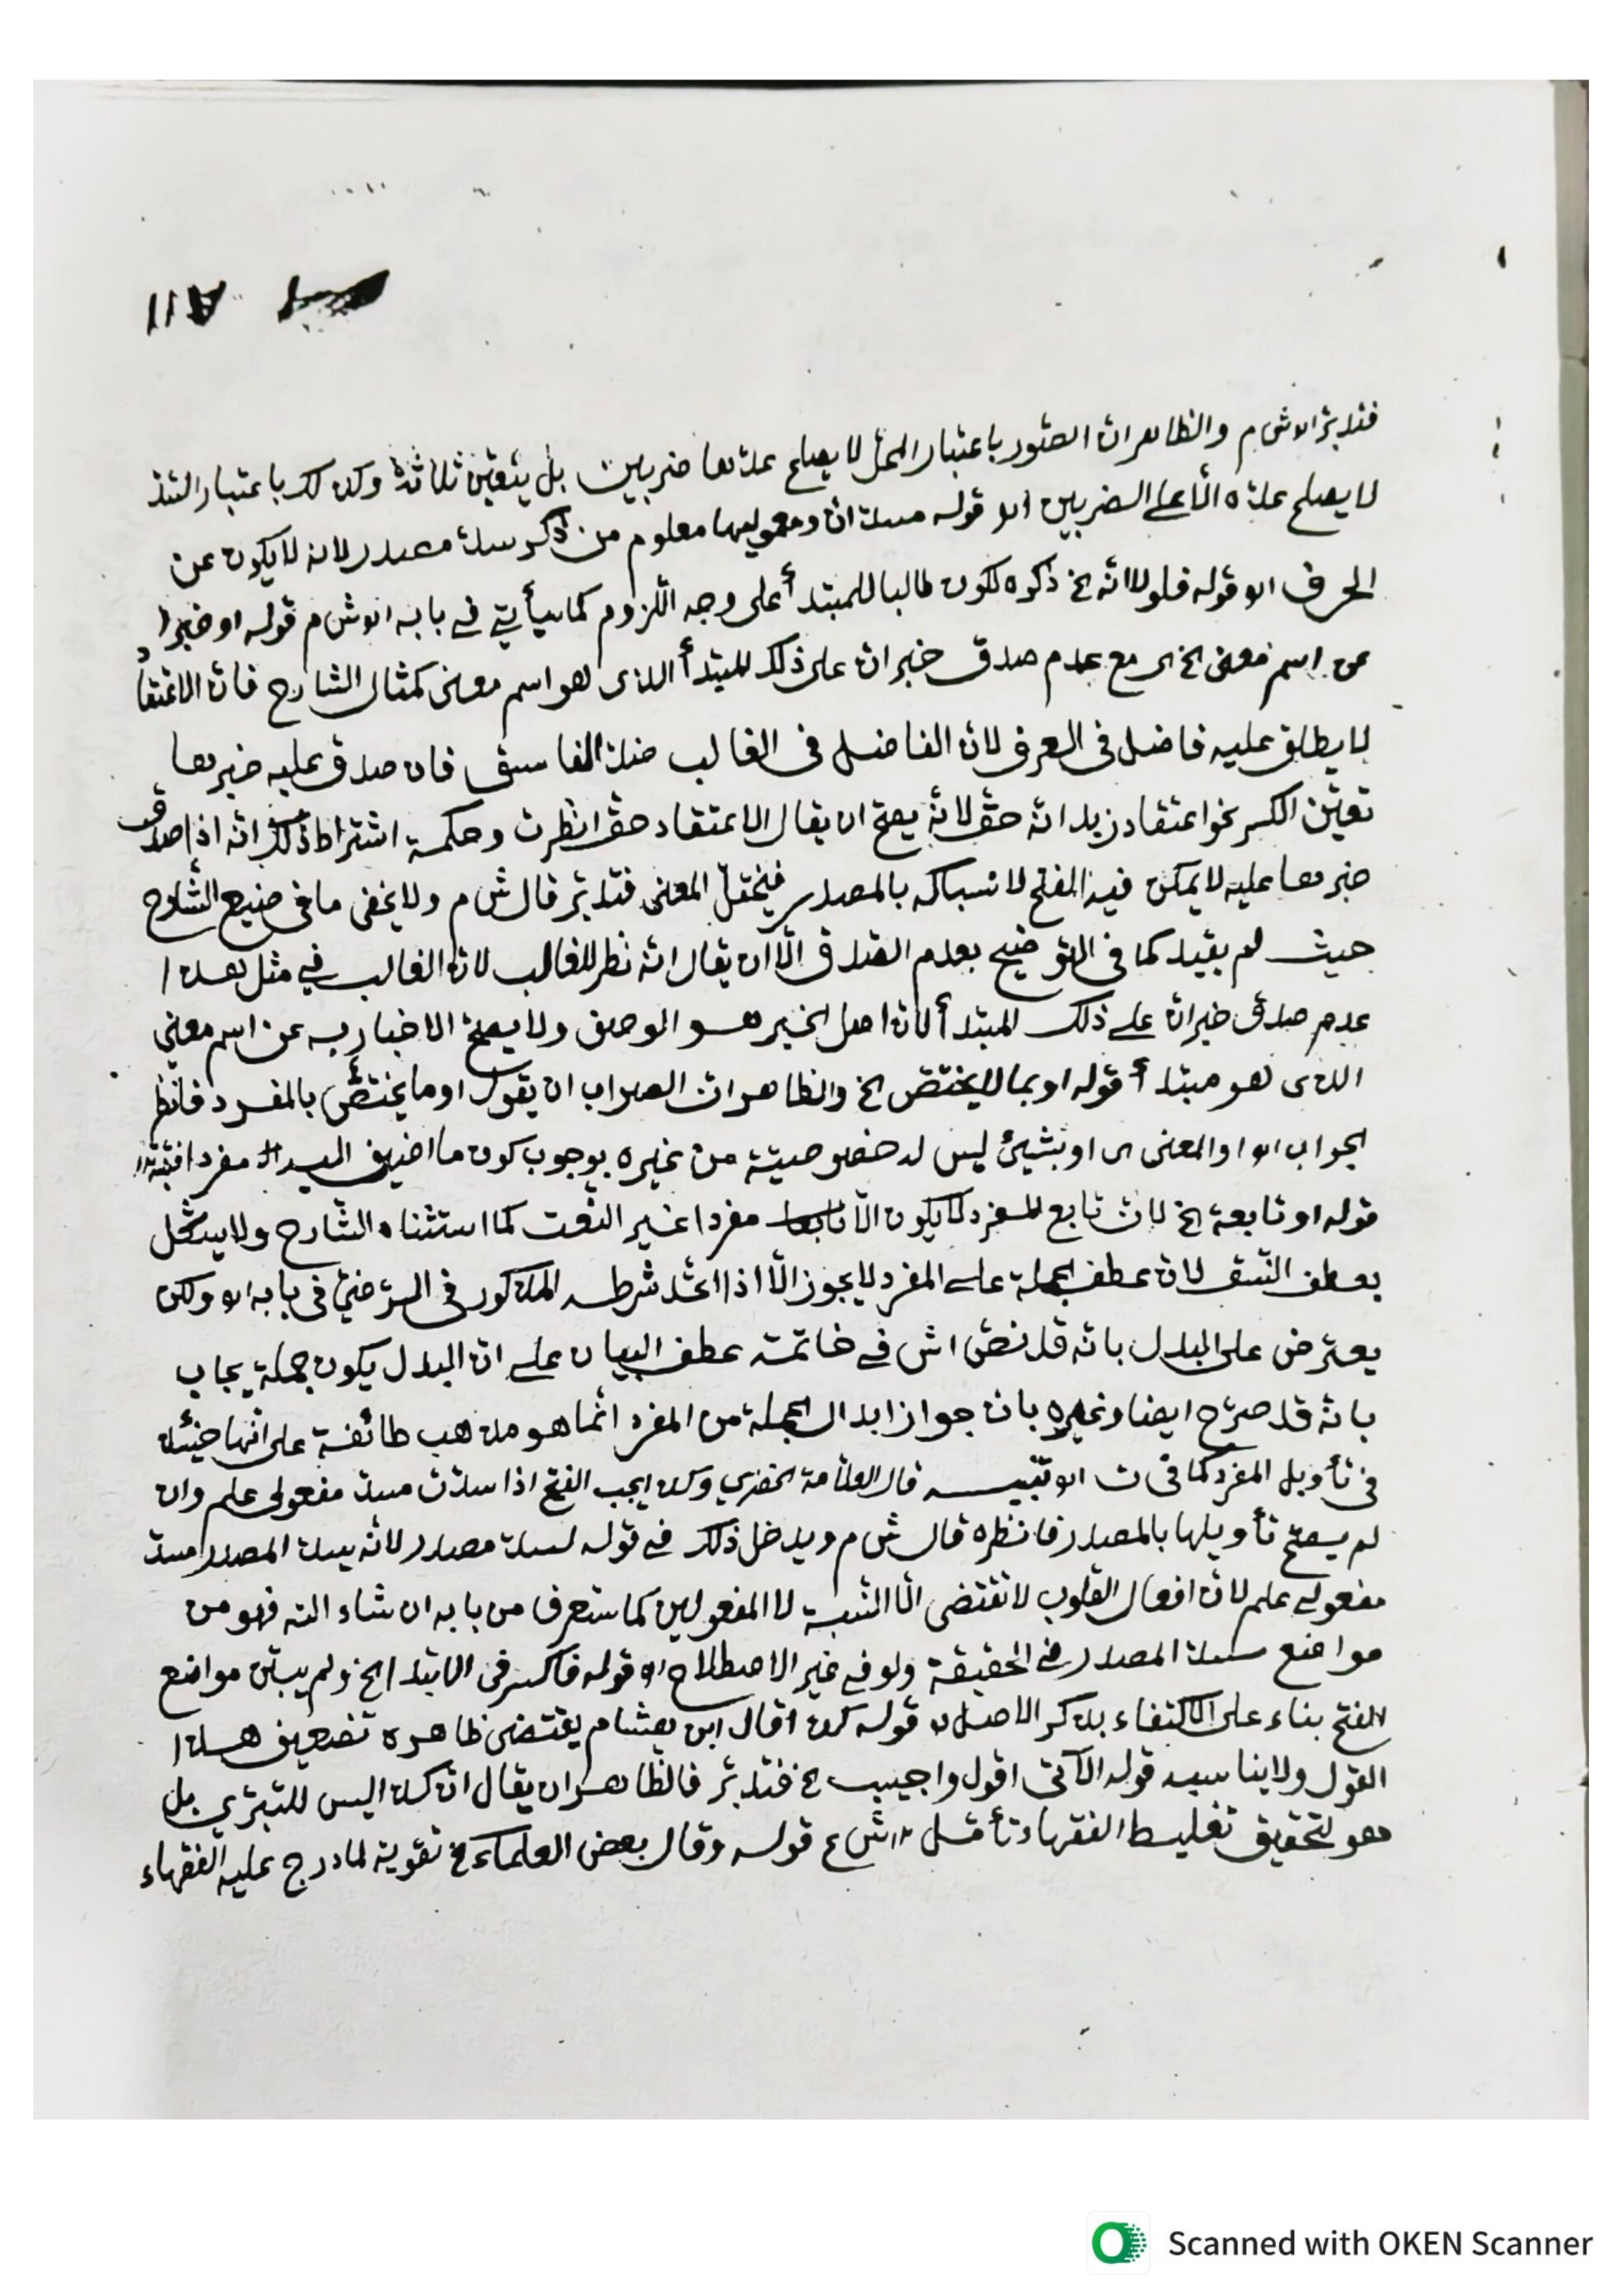 ١١٨
فتدبر اه ش م والظاهر ان الصور باعتبار المحل لا يصلح عدها ضربين بل يتعين ثلاثة وكذلك باعتبار
لا يصلح عده الا على الضربين اه قوله مسد ان ومعموليها معلوم من ذكر سد مصدر لانه لا يكون عن
الحرف اه قوله فلولا انه الخ ذكره لكون طالبا للمبتدأ على وجه اللزوم كما سيأتي في بابه اه ش م قوله او خبرا
عن اسم معنى الخ اى مع عدم صدق خبر ان على ذلك المبتدأ الذى هو اسم معنى كمثال الشارح فان الاعتقا
لا يطلق عليه فاضل فى العرف لان الفاضل فى الغالب ضد الفاسق فان صدق عليه خبرها
تعين الكسر نحو اعتقاد زيد انه حق لانه يصح ان يقال الاعتقاد حق انظرت وحكمة اشتراط ذلك انه اذا صدق
خبرها عليه لا يمكن فيه الفتح لانسباكه بالمصدر فيختل المعنى فتدبر قال ش م ولا يخفى ما فى صنيع الشارح
حيث لم يقيد كما فى التوضيح بعدم الصدق الا ان يقال انه نظر للغالب لان الغالب في مثل هذا
عدم صدق خبر ان على ذلك المبتدأ لان اصل الخبر هو الوصف ولا يصح الاخبار به عن اسم معنى
الذى هو مبتدأ قوله او بما لا يختص الخ والظاهر ان الصواب ان يقول او ما يختص بالمفرد فانظر
الجواب اه او المعنى اى او بشيئ ليس له خصوصية من غيره بوجوب كون ما اضيف اليه مفردا
قوله او تابعة الخ لان تابع المفرد لا يكون الا مفردا غير النعت كما استثناه الشارح ولا يشكل
بعطف النسق لان عطف الجملة على المفرد لا يجوز الا اذا اتحد شرطه المذكور فى الرضي فى بابه اه ولكن
يعترض على البدل بانه قد نص اش في خاتمة عطف البيان على ان البدل يكون جملة يجاب
بانه قد صرح ايضا وغيره بان جواز ابدال الجملة من المفرد انما هو مذهب طائفة على انها حينئذ
فى تأويل المفرد كما فى ت اه تنبيه قال العلامة الخضري وكذا يجب الفتح اذا سدت مسد مفعولى علم وان
لم يصح تأويلها بالمصدر فانظره قال ش م ويدخل ذلك في قوله لسد مصدر لانه يسد المصدر مسد
مفعولي علم لان افعال القلوب لا تقتضى الا النسبة لا المفعولين كما ستعرف من بابه ان شاء الله فهو من
مواضع سد المصدر في الحقيقة ولو في غير الاصطلاح اه قوله فاكسر فى الابتدا الخ ولم يبين مواضع
الفتح بناء على الاكتفاء بذكر الاصل اه قوله كذا قال ابن هشام يقتضى ظاهره تضعيف هذا
القول ولا يناسبه قوله الآتى اقول واجيب الخ فتدبر فالظاهر ان يقال ان كذا ليس للتبري بل
هو لتحقيق تغليط الفقهاء تأمل اه ش ع قوله وقال بعض العلماء الخ تقوية لما درج عليه الفقهاء
Scanned with OKEN Scanner